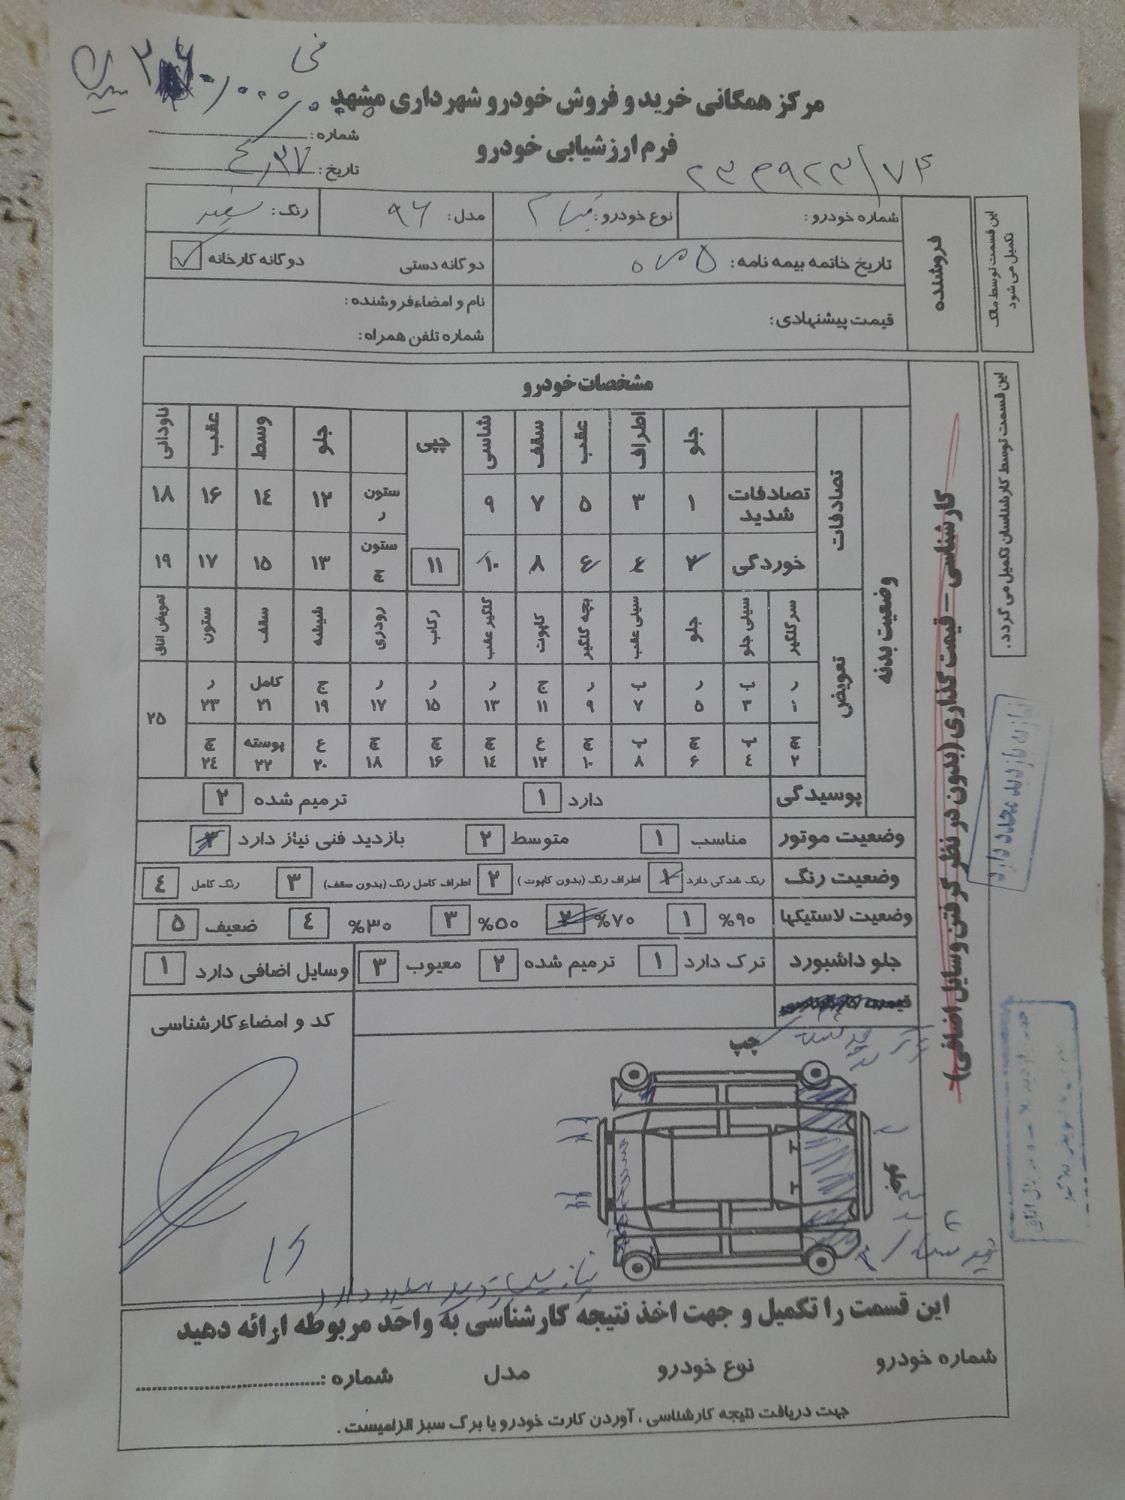 مرکز همگانی خرید و فروش خودرو شهرداری مشهد
فرم ارزشیابی خودرو
شماره:
تاریخ:
فروشنده
این قسمت توسط مالک تکمیل می شود
شماره خودرو:
نوع خودرو: تیبا ۲
مدل: ۹۶
رنگ: سفید
تاریخ خاتمه بیمه نامه: ۵ ماه
دوگانه دستی
دوگانه کارخانه ✓
قیمت پیشنهادی:
نام و امضاء فروشنده:
شماره تلفن همراه:
این قسمت توسط کارشناسان تکمیل می گردد.
کارشناسی – قیمت گذاری (بدون در نظر گرفتن وسایل اضافی)
مشخصات خودرو
وضعیت بدنه
تصادفات
جلو اطراف عقب سقف شاسی پلی جلو وسط عقب ناودانی
تصادفات شدید ۱ ۳ ۵ ۷ ۹ ستون ر ۱۲ ۱۴ ۱۶ ۱۸
خوردگی ۲ ۴ ۶ ۸ ۱۰ ۱۱ ستون چ ۱۳ ۱۵ ۱۷ ۱۹
تعویض
سر گلگیر سینی جلو جلو سینی عقب بچه گلگیر کاپوت گلگیر عقب رکاب رودری شیشه سقف ستون تعویض اتاق
ر ۱ ر ۵ ر ۹ ج ۱۱ ر ۱۳ ر ۱۵ ر ۱۷ ج ۱۹ کامل ۲۱ ر ۲۳ ۲۵
چ ۲ چ ۶ چ ۱۰ ع ۱۲ چ ۱۴ چ ۱۶ چ ۱۸ ع ۲۰ پوسته ۲۲ چ ۲۴
پوسیدگی دارد ۱ ترمیم شده ۲
وضعیت موتور مناسب ۱ متوسط ۲ بازدید فنی نیاز دارد ۳
وضعیت رنگ رنگ شدگی دارد ۱ اطراف رنگ (بدون کاپوت) ۲ اطراف کامل رنگ (بدون سقف) ۳ رنگ کامل ۴
وضعیت لاستیکها ۹۰% ۱ ۷۰% ۲ ۵۰% ۳ ۳۰% ۴ ضعیف ۵
جلو داشبورد ترک دارد ۱ ترمیم شده ۲ معیوب ۳ وسایل اضافی دارد ۱
کد و امضاء کارشناسی
چپ
نیاز به بازدید مجدد دارد
این قسمت را تکمیل و جهت اخذ نتیجه کارشناسی به واحد مربوطه ارائه دهید
شماره خودرو نوع خودرو مدل شماره:
جهت دریافت نتیجه کارشناسی ، آوردن کارت خودرو یا برگ سبز الزامیست .